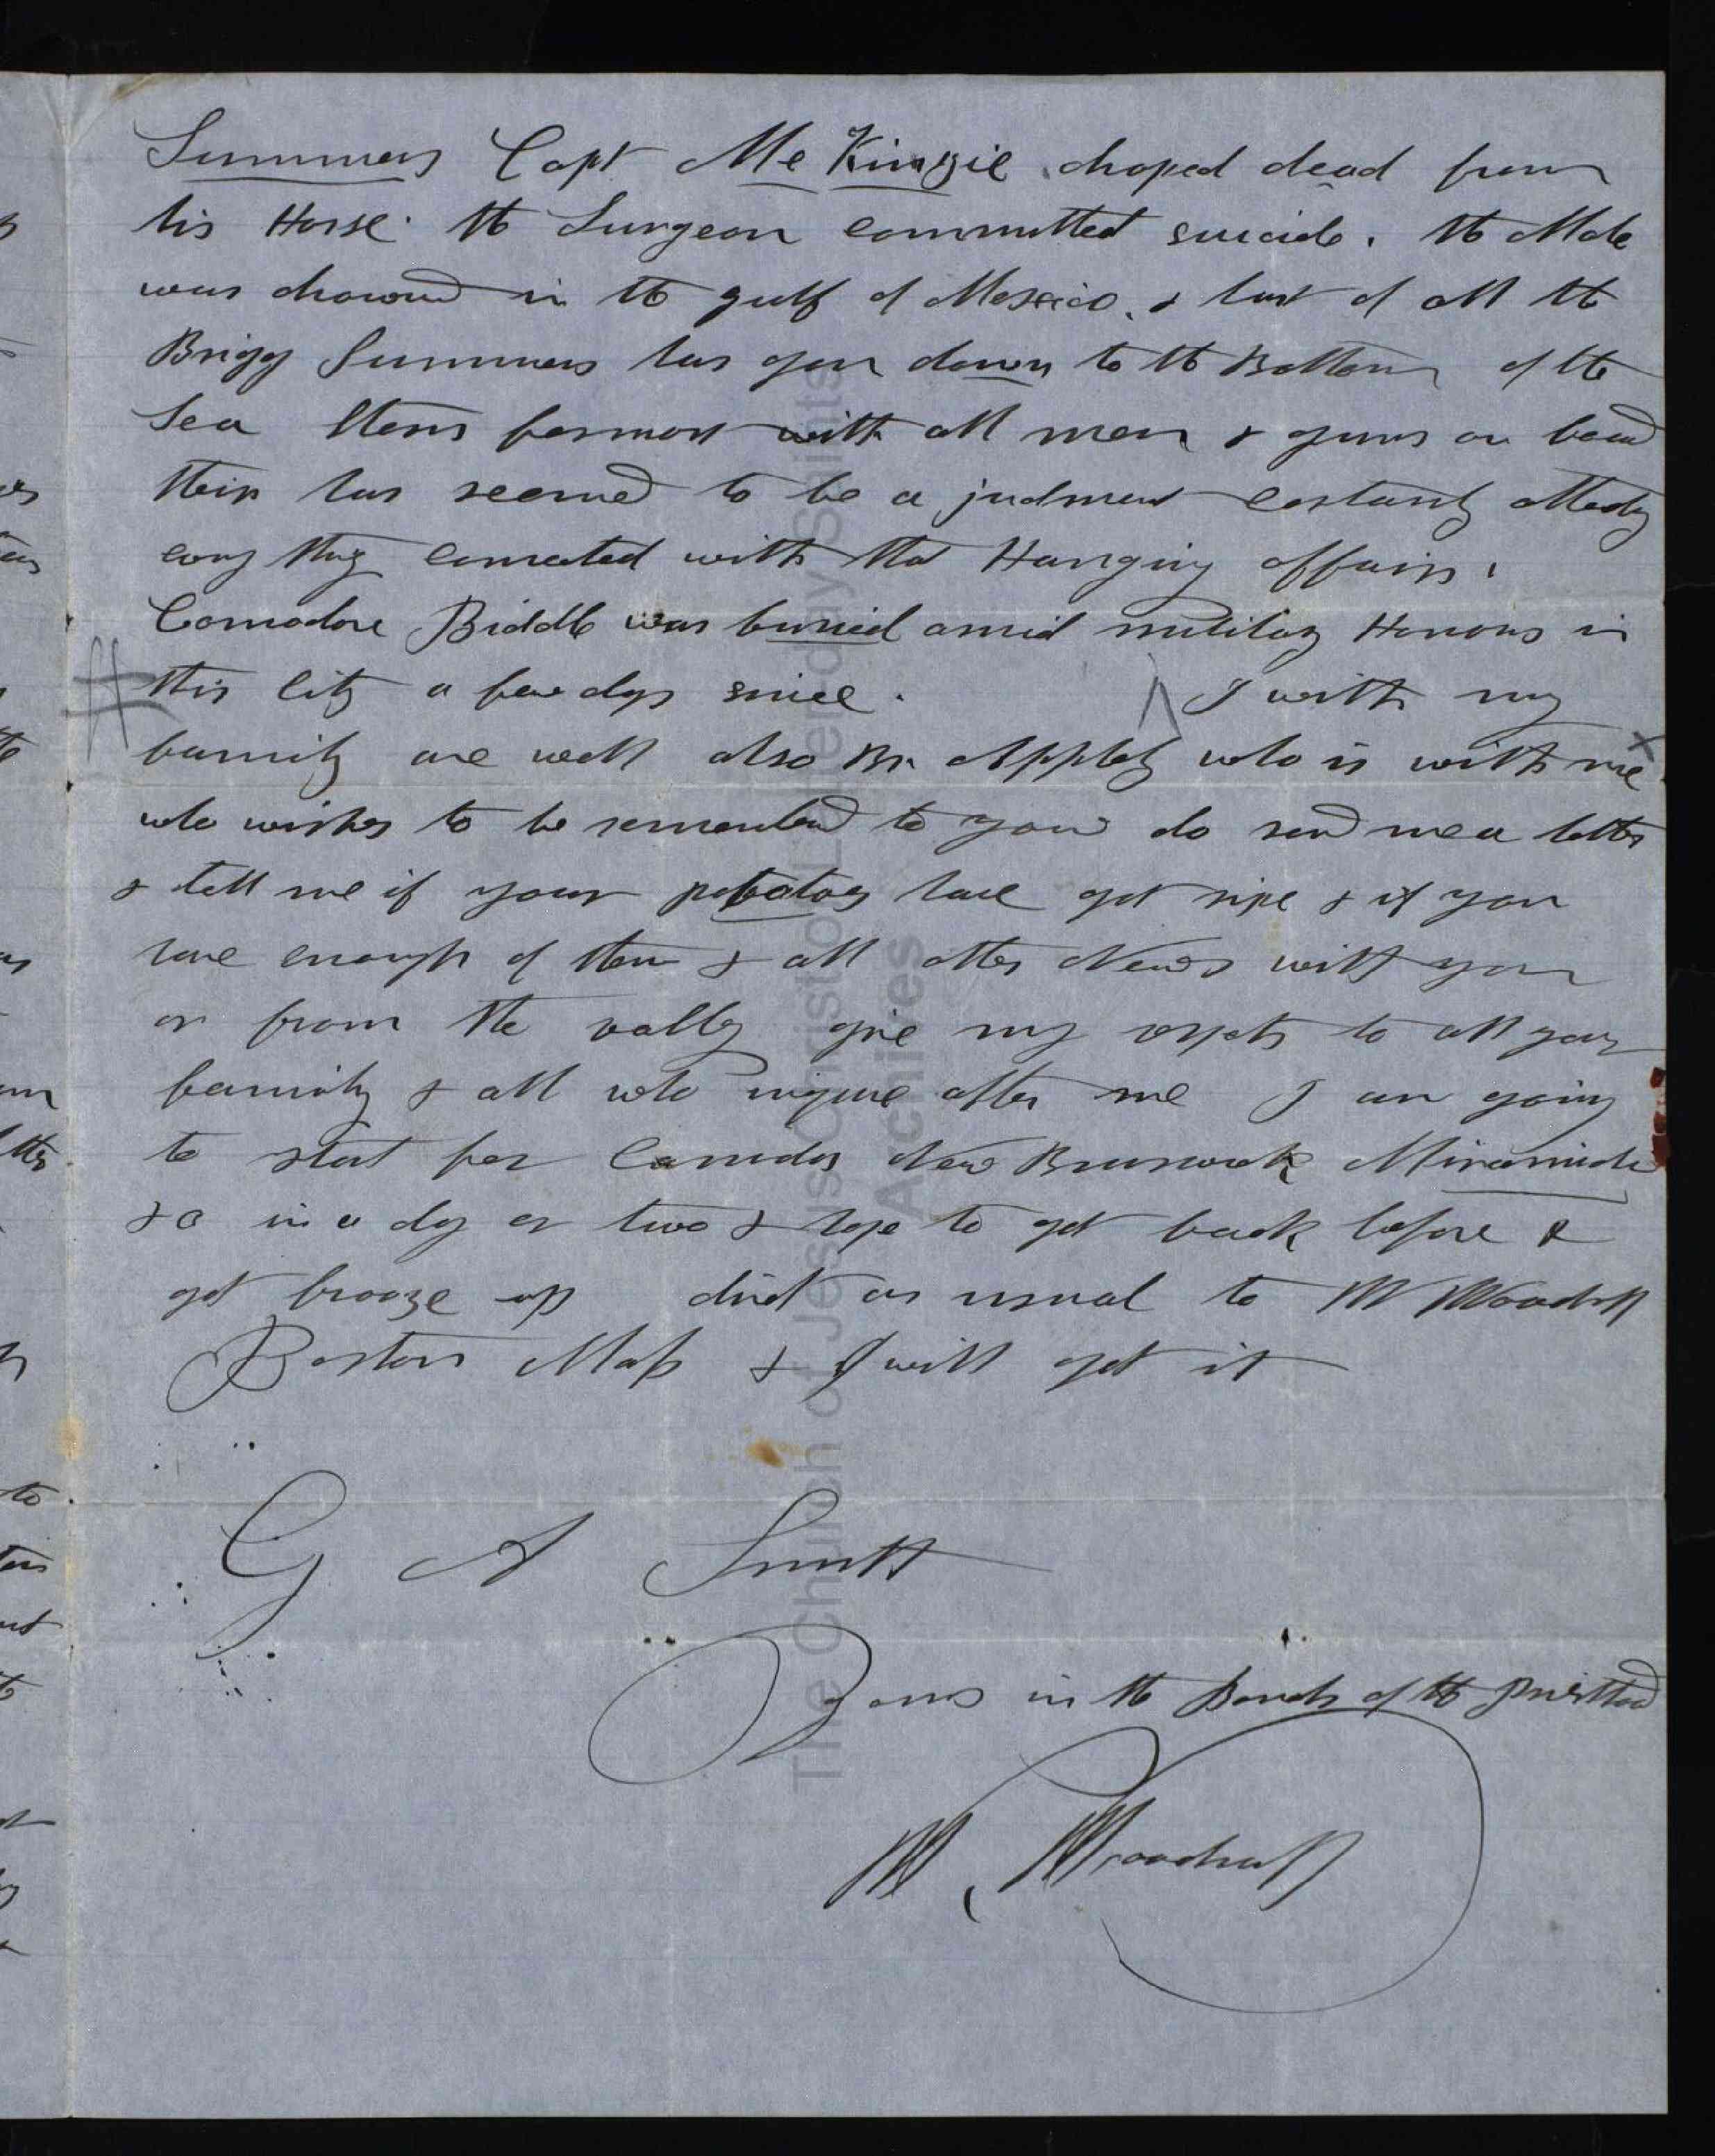 Summers Capt Mc Kinzie droped dead from
his Horse. the Surgeon committed suicide. the Mate
was drownd in the gulf of Mexico, & last of all the
Brigg Summers has gon down to the Bottom of the
Sea Stern formost with all men & guns on board
their has seemed to be a judment constantly attendig
evry thing conected with that Hanging affair.
Comodore Biddle was buried amid military Honors in
this city a few days since. I with my
family are well also Br. Appleby who is with me
who wishes to be rememberd to you do send me a letter
& tell me if your potatoes have got ripe & if you
have enough of them & all other News with you
or from the vally give my respets to all your
family & all who inquire after me I am going
to start for Canada New Brunswick Miramichi
&c in a day or two & hope to get back before I
get frooze up dirct as usual to W Woodruff
Boston Mass & I will get it
G A Smith
Yours in the Bonds of the Priesthood
W. Woodruff
The Church of Jesus Christ of Latter-day Saints
Archives